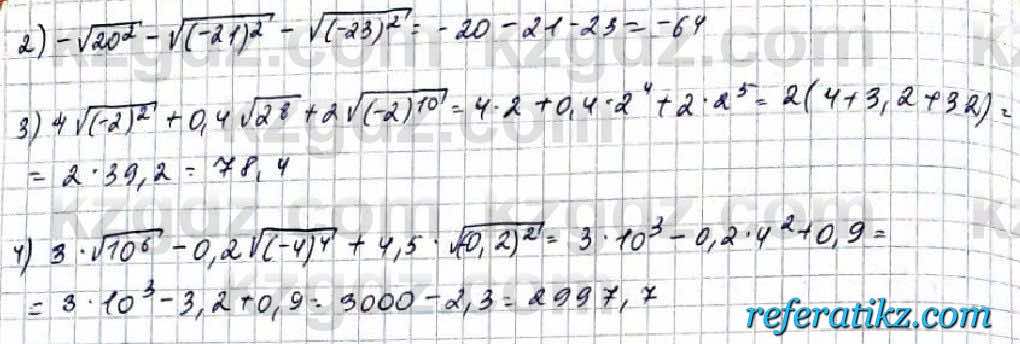 2) -√20² - √(-21)² - √(-23)² = -20 - 21 - 23 = -64
3) 4√(-2)² + 0,4√2⁸ + 2√(-2)¹⁰ = 4·2 + 0,4·2⁴ + 2·2⁵ = 2(4+3,2+32) =
= 2·39,2 = 78,4
4) 3·√10⁶ - 0,2√(-4)⁴ + 4,5·√(0,2)² = 3·10³ - 0,2·4² + 0,9 =
= 3·10³ - 3,2 + 0,9 = 3000 - 2,3 = 2997,7
referatikz.com